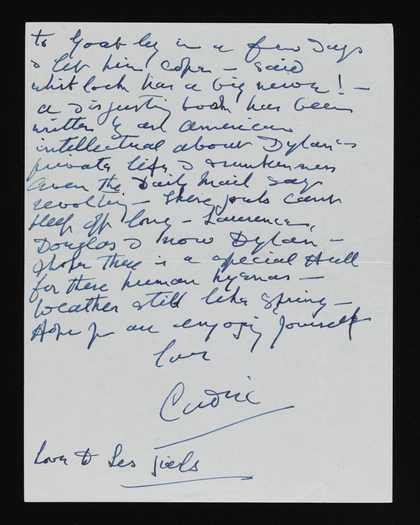 to Goatley in a few days
& let him cope – said
Whitlock has a big news! –
a disgusting book has been
written by an American
intellectual about Dylans
private life & drunkenness
Even the Daily Mail says
revolting – these pouls cant
keep off long – Lawrence,
Douglas & now Dylan –
I hope there is a special Hell
for these human hyenas –
Weather still like Spring –
Hope you are enjoying yourself
love
Cedric
Love to Les Girls